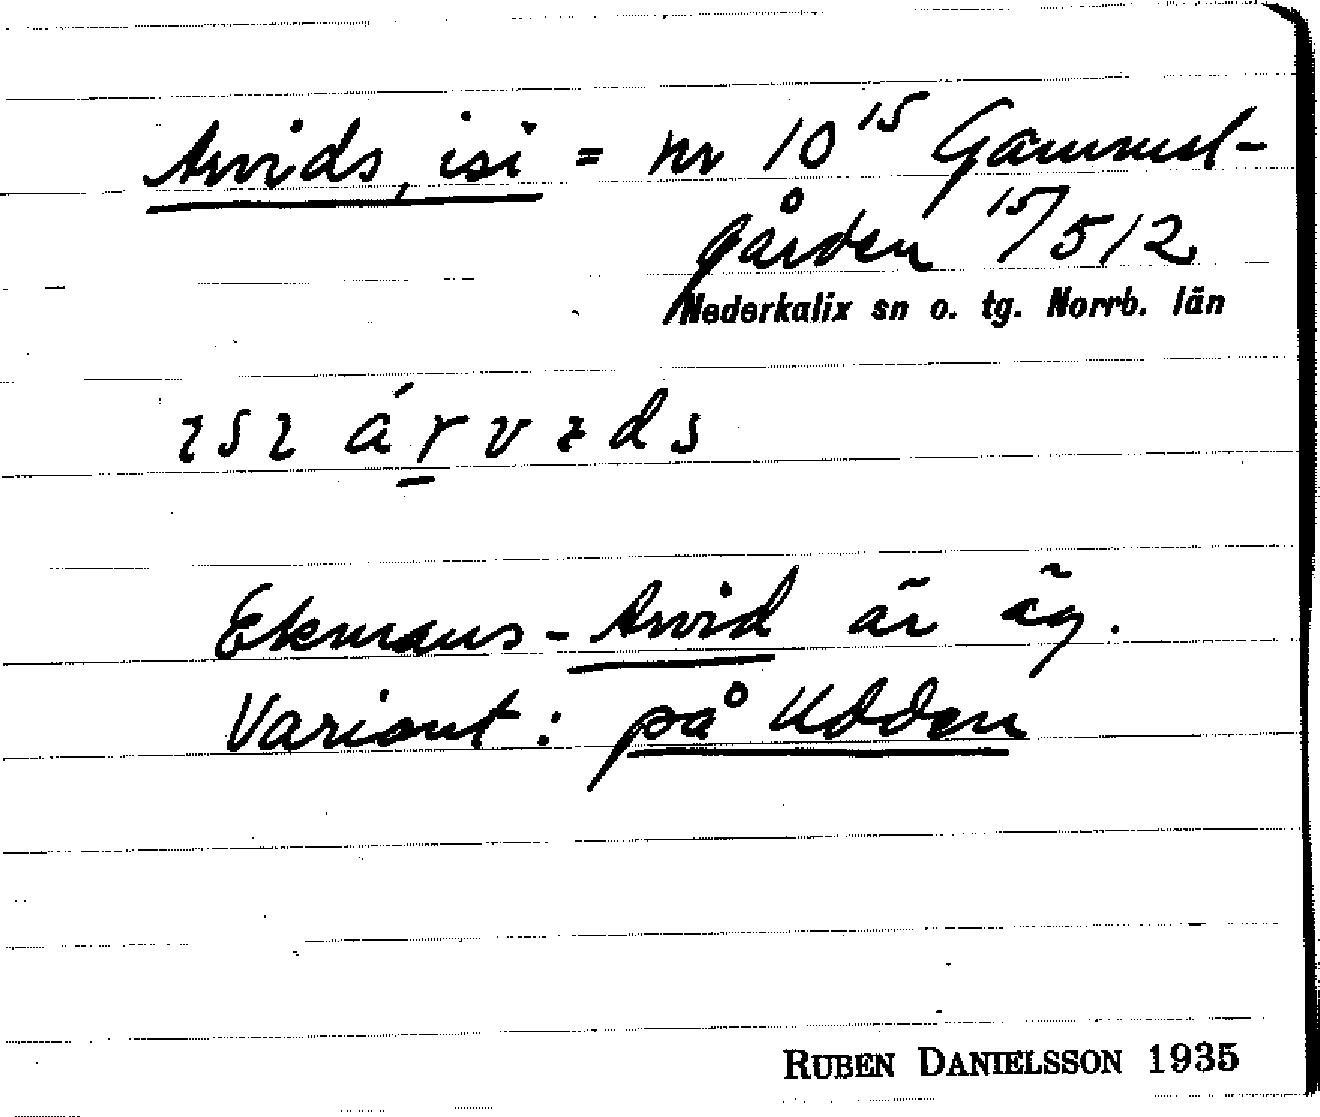 Arvids, isi = nr 10¹⁵ Gammel-
gården ¹⁵/512
Nederkalix sn o. tg. Norrb. län
ɩsɩ árvɩds
Ekmans-Arvid är äg.
Variant: på Udden
RUBEN DANIELSSON 1935